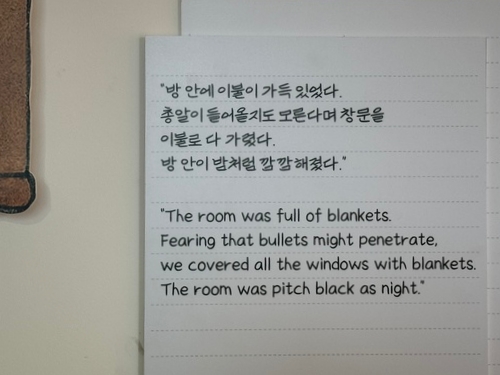 "방 안에 이불이 가득 있었다.
총알이 들어올지도 모른다며 창문을
이불로 다 가렸다.
방 안이 밤처럼 깜깜해졌다."
"The room was full of blankets.
Fearing that bullets might penetrate,
we covered all the windows with blankets.
The room was pitch black as night."